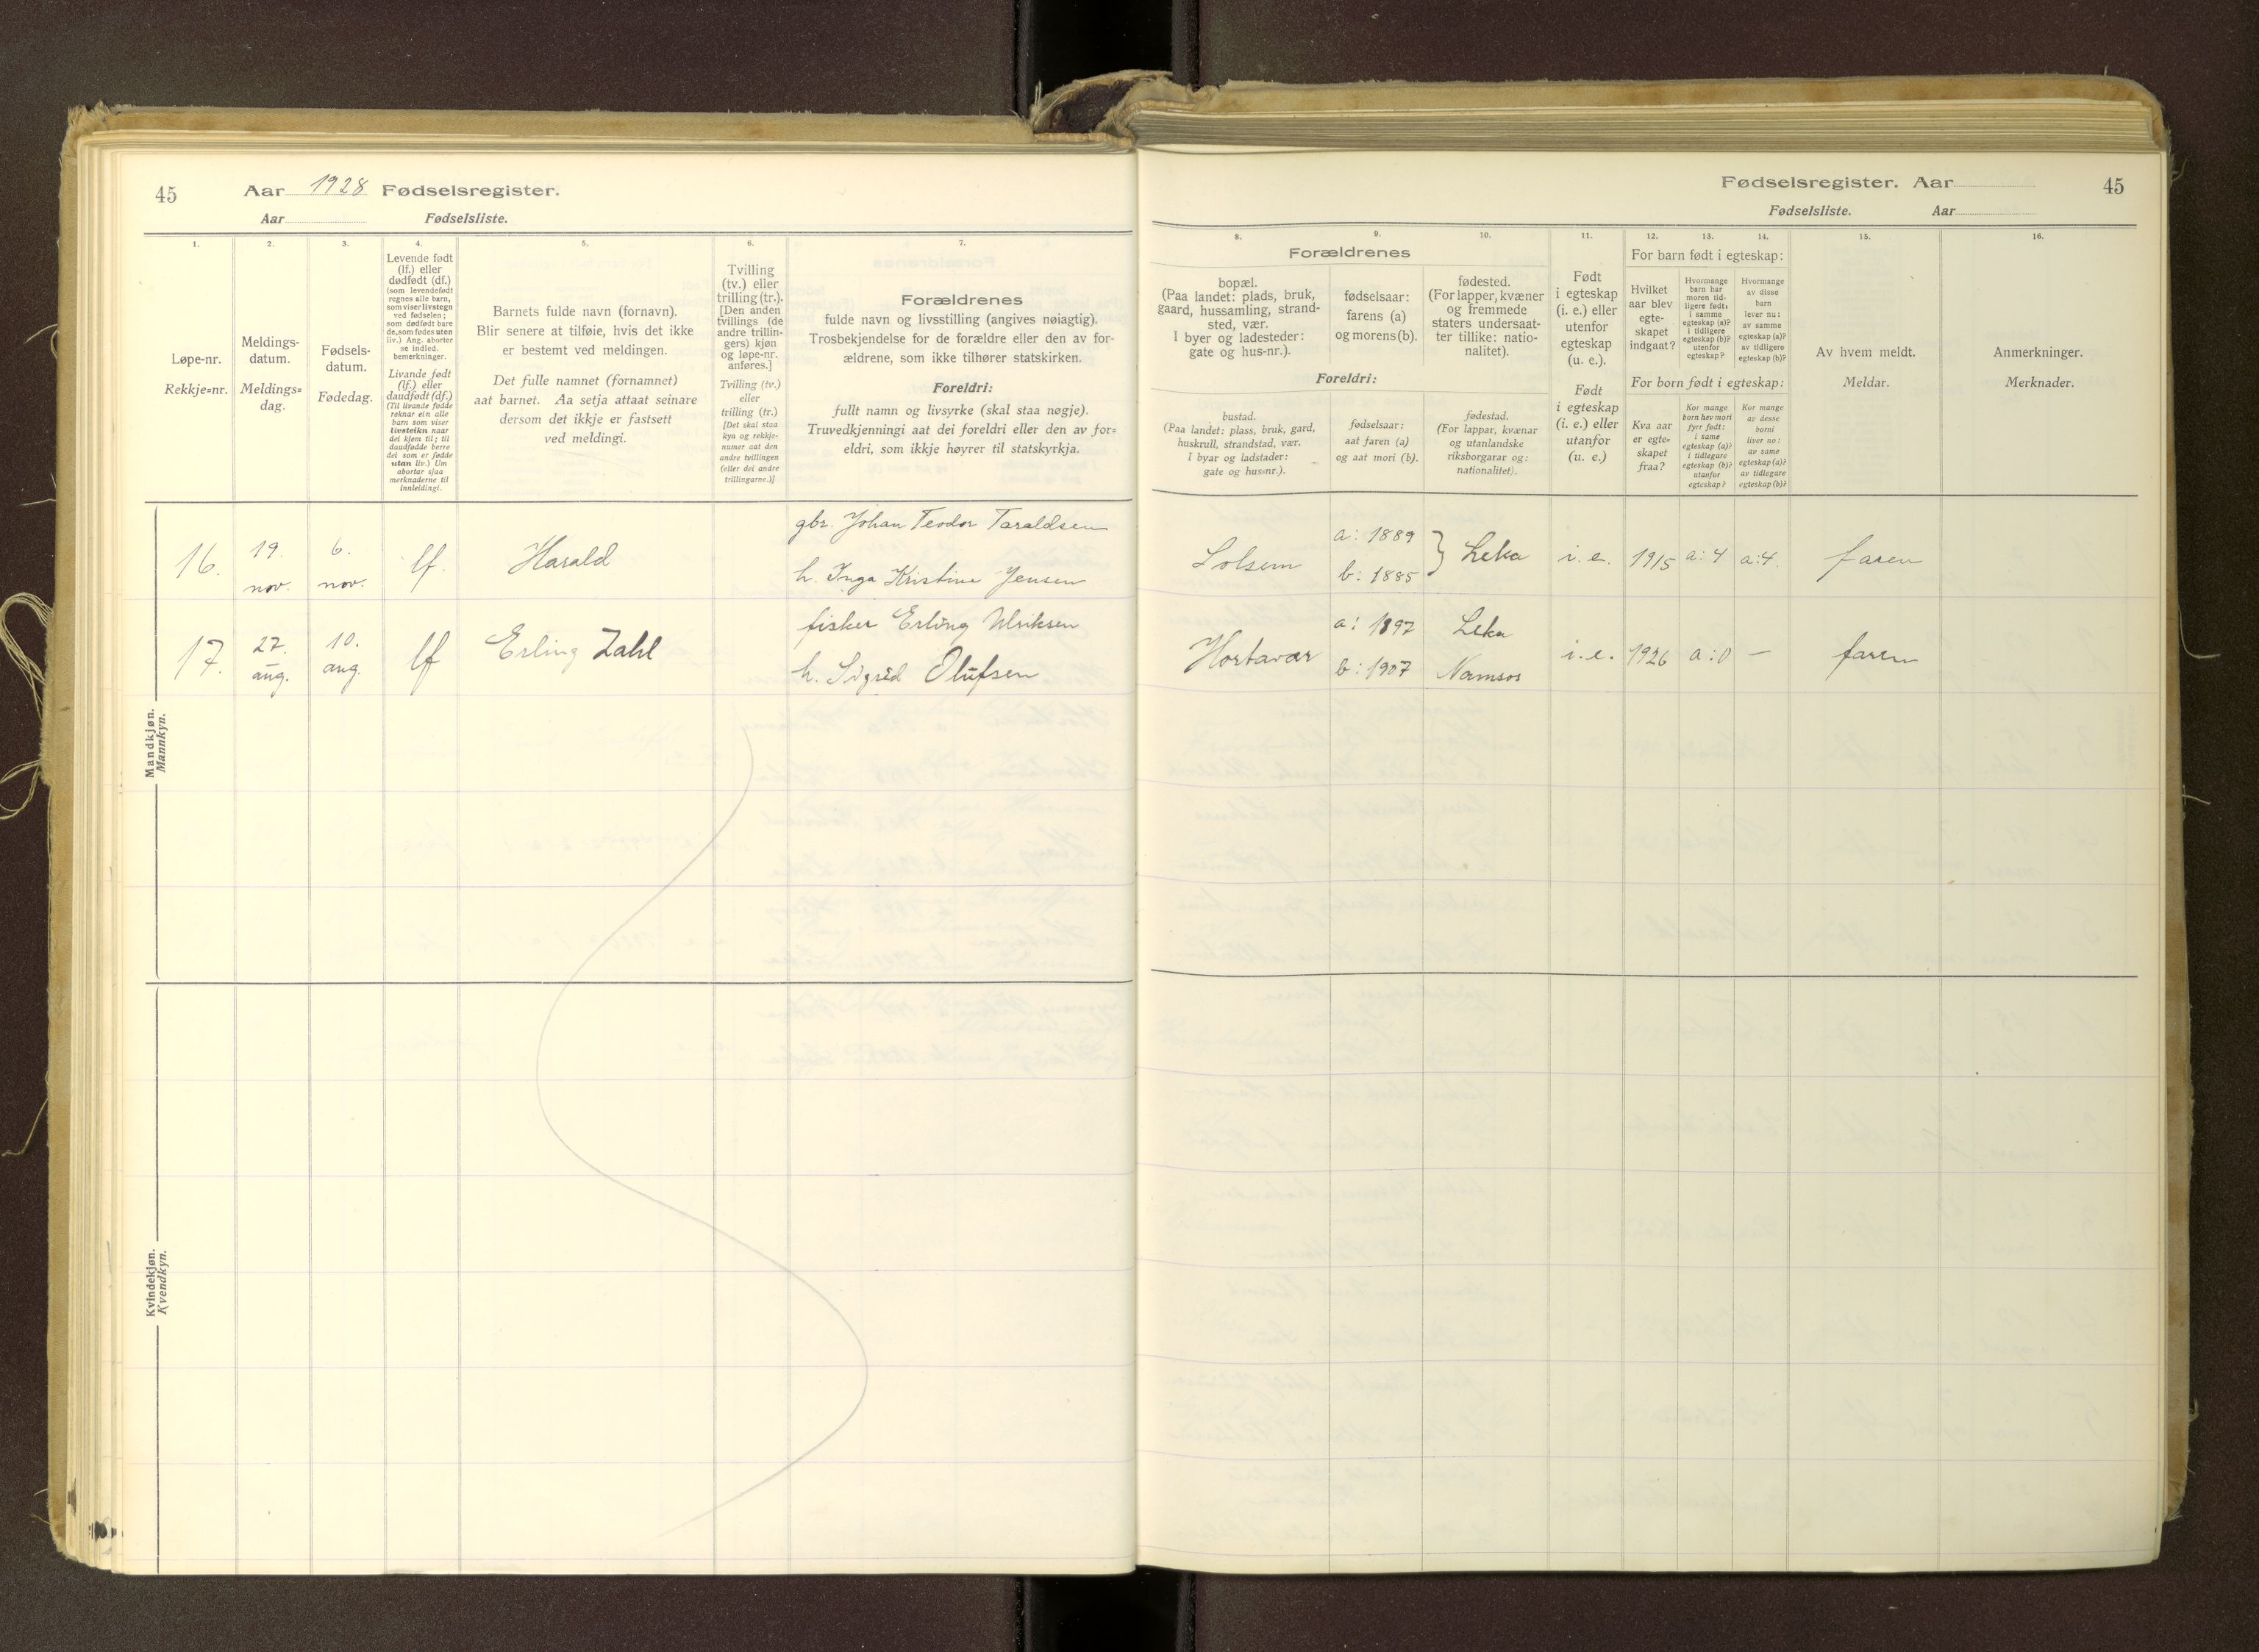 45
Aar 1928 Fødselsregister.
Aar Fødselsliste.
Fødselsregister. Aar
45
Fødselsliste. Aar
1.
Løpe-nr.
Rekkje=nr.
2.
Meldings-
datum.
Meldings=
dag.
3.
Fødsels-
datum.
Fødedag.
4.
Levende født
(lf.) eller
dødfødt (df.)
(som levendefødt
regnes alle barn,
som viser livstegn
ved fødselen;
som dødfødt bare
de, som fødes uten
liv.) Ang. aborter
se indled.
bemerkninger.
Livande født
(lf.) eller
daudfødt (df.)
(Til livande fødde
reknar ein alle
barn som viser
livsteikn naar
dei kjem til; til
daudfødde berre
dei som er fødde
utan liv.) Um
abortar sjaa
merknaderne til
innleidingi.
5.
Barnets fulde navn (fornavn).
Blir senere at tilføie, hvis det ikke
er bestemt ved meldingen.
Det fulle namnet (fornamnet)
aat barnet. Aa setja attaat seinare
dersom det ikkje er fastsett
ved meldingi.
6.
Tvilling
(tv.) eller
trilling (tr.).
[Den anden
tvillings (de
andre trillin-
gers) kjøn
og løpe-nr.
anføres.]
Tvilling (tv.)
eller
trilling (tr.)
[Det skal staa
kyn og rekkje-
numer aat den
andre tvillingen
(eller dei andre
trillingarne.)]
7.
Forældrenes
fulde navn og livsstilling (angives nøiagtig).
Trosbekjendelse for de forældre eller den av for-
ældrene, som ikke tilhører statskirken.
Foreldri:
fullt namn og livsyrke (skal staa nøgje).
Truvedkjenningi aat dei foreldri eller den av for=
eldri, som ikkje høyrer til statskyrkja.
Forældrenes
8.
bopæl.
(Paa landet: plads, bruk,
gaard, husmandsg, strand-
sted, vær.
I byer og ladesteder:
gate og hus-nr.).
9.
fødselsaar:
farens (a)
og morens (b).
10.
fødested.
(For lapper, kvæner
og fremmede
staters undersaat-
ter tillike: natio-
nalitet).
Foreldri:
bustad.
(Paa landet: plass, bruk, gard,
huskrull, strandstad, vær.
I byar og ladstader:
gate og hus=nr.).
fødselsaar:
aat faren (a)
og aat mori (b).
fødestad.
(For lappar, kvænar
og utanlandske
riksborgarar og:
nationalitet).
11.
Født
i egteskap
(i. e.) eller
utenfor
egteskap
(u. e.).
Født
i egteskap
(i. e.) eller
utanfor
(u. e.)
For barn født i egteskap:
12.
Hvilket
aar blev
egte-
skapet
indgaat?
13.
Hvormange
barn har
moren tid-
ligere født:
i samme
egteskap (a)?
i tidligere
egteskap (b)?
utenfor
egteskap?
14.
Hvormange
av disse
barn
lever nu:
av samme
egteskap (a)?
av tidligere
egteskap (b)?
For born født i egteskap:
Kva aar
er egte=
skapet
fraa?
Kor mange
born hev mori
fyrr født:
i same
egteskap (a)?
i tidlegare
egteskap (b)?
utanfor
egteskap?
Kor mange
av desse
borni
liver no:
av same
egteskap (a)?
av tidlegare
egteskap (b)?
15.
Av hvem meldt.
Meldar.
16.
Anmerkninger.
Merknader.
Mandkjøn.
Mannkyn.
16. 19. nov. 6. nov. lf. Harald
gbr. Johan Teodor Taraldsen
h. Inga Kristine Jensen
Solsem a: 1889 b: 1885 } Leka i. e. 1915 a: 4 a: 4. faren
17. 27. aug. 10. aug. lf Erling Zahl
fisker Erling Ulriksen
h. Sigrid Olufsen
Hortavær a: 1897 b: 1907 Leka Namsos i. e. 1926 a: 0 — faren
Kvindekjøn.
Kvendkyn.